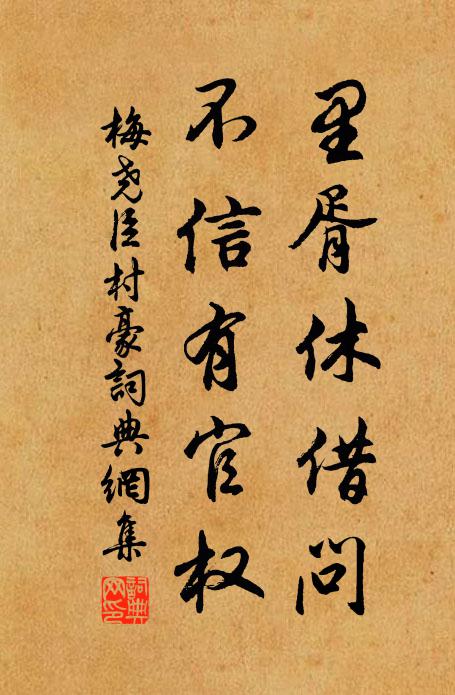 里胥休借问
不信有官权
梅尧臣村豪詞典網集
詞典網印